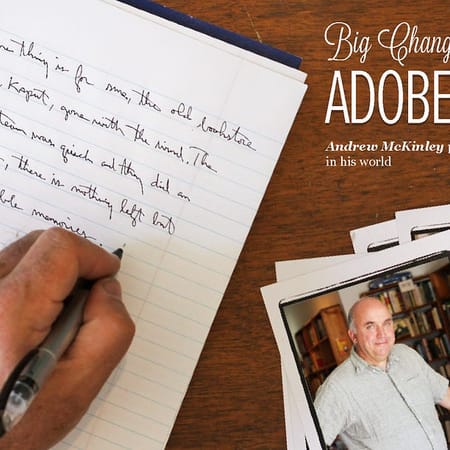 thing is for me, the old bookstore
Kaput, gone with the wind. The
team was quick and they did an
, there is nothing left but
memories.
Big Chang
ADOBE
Andrew McKinley
in his world